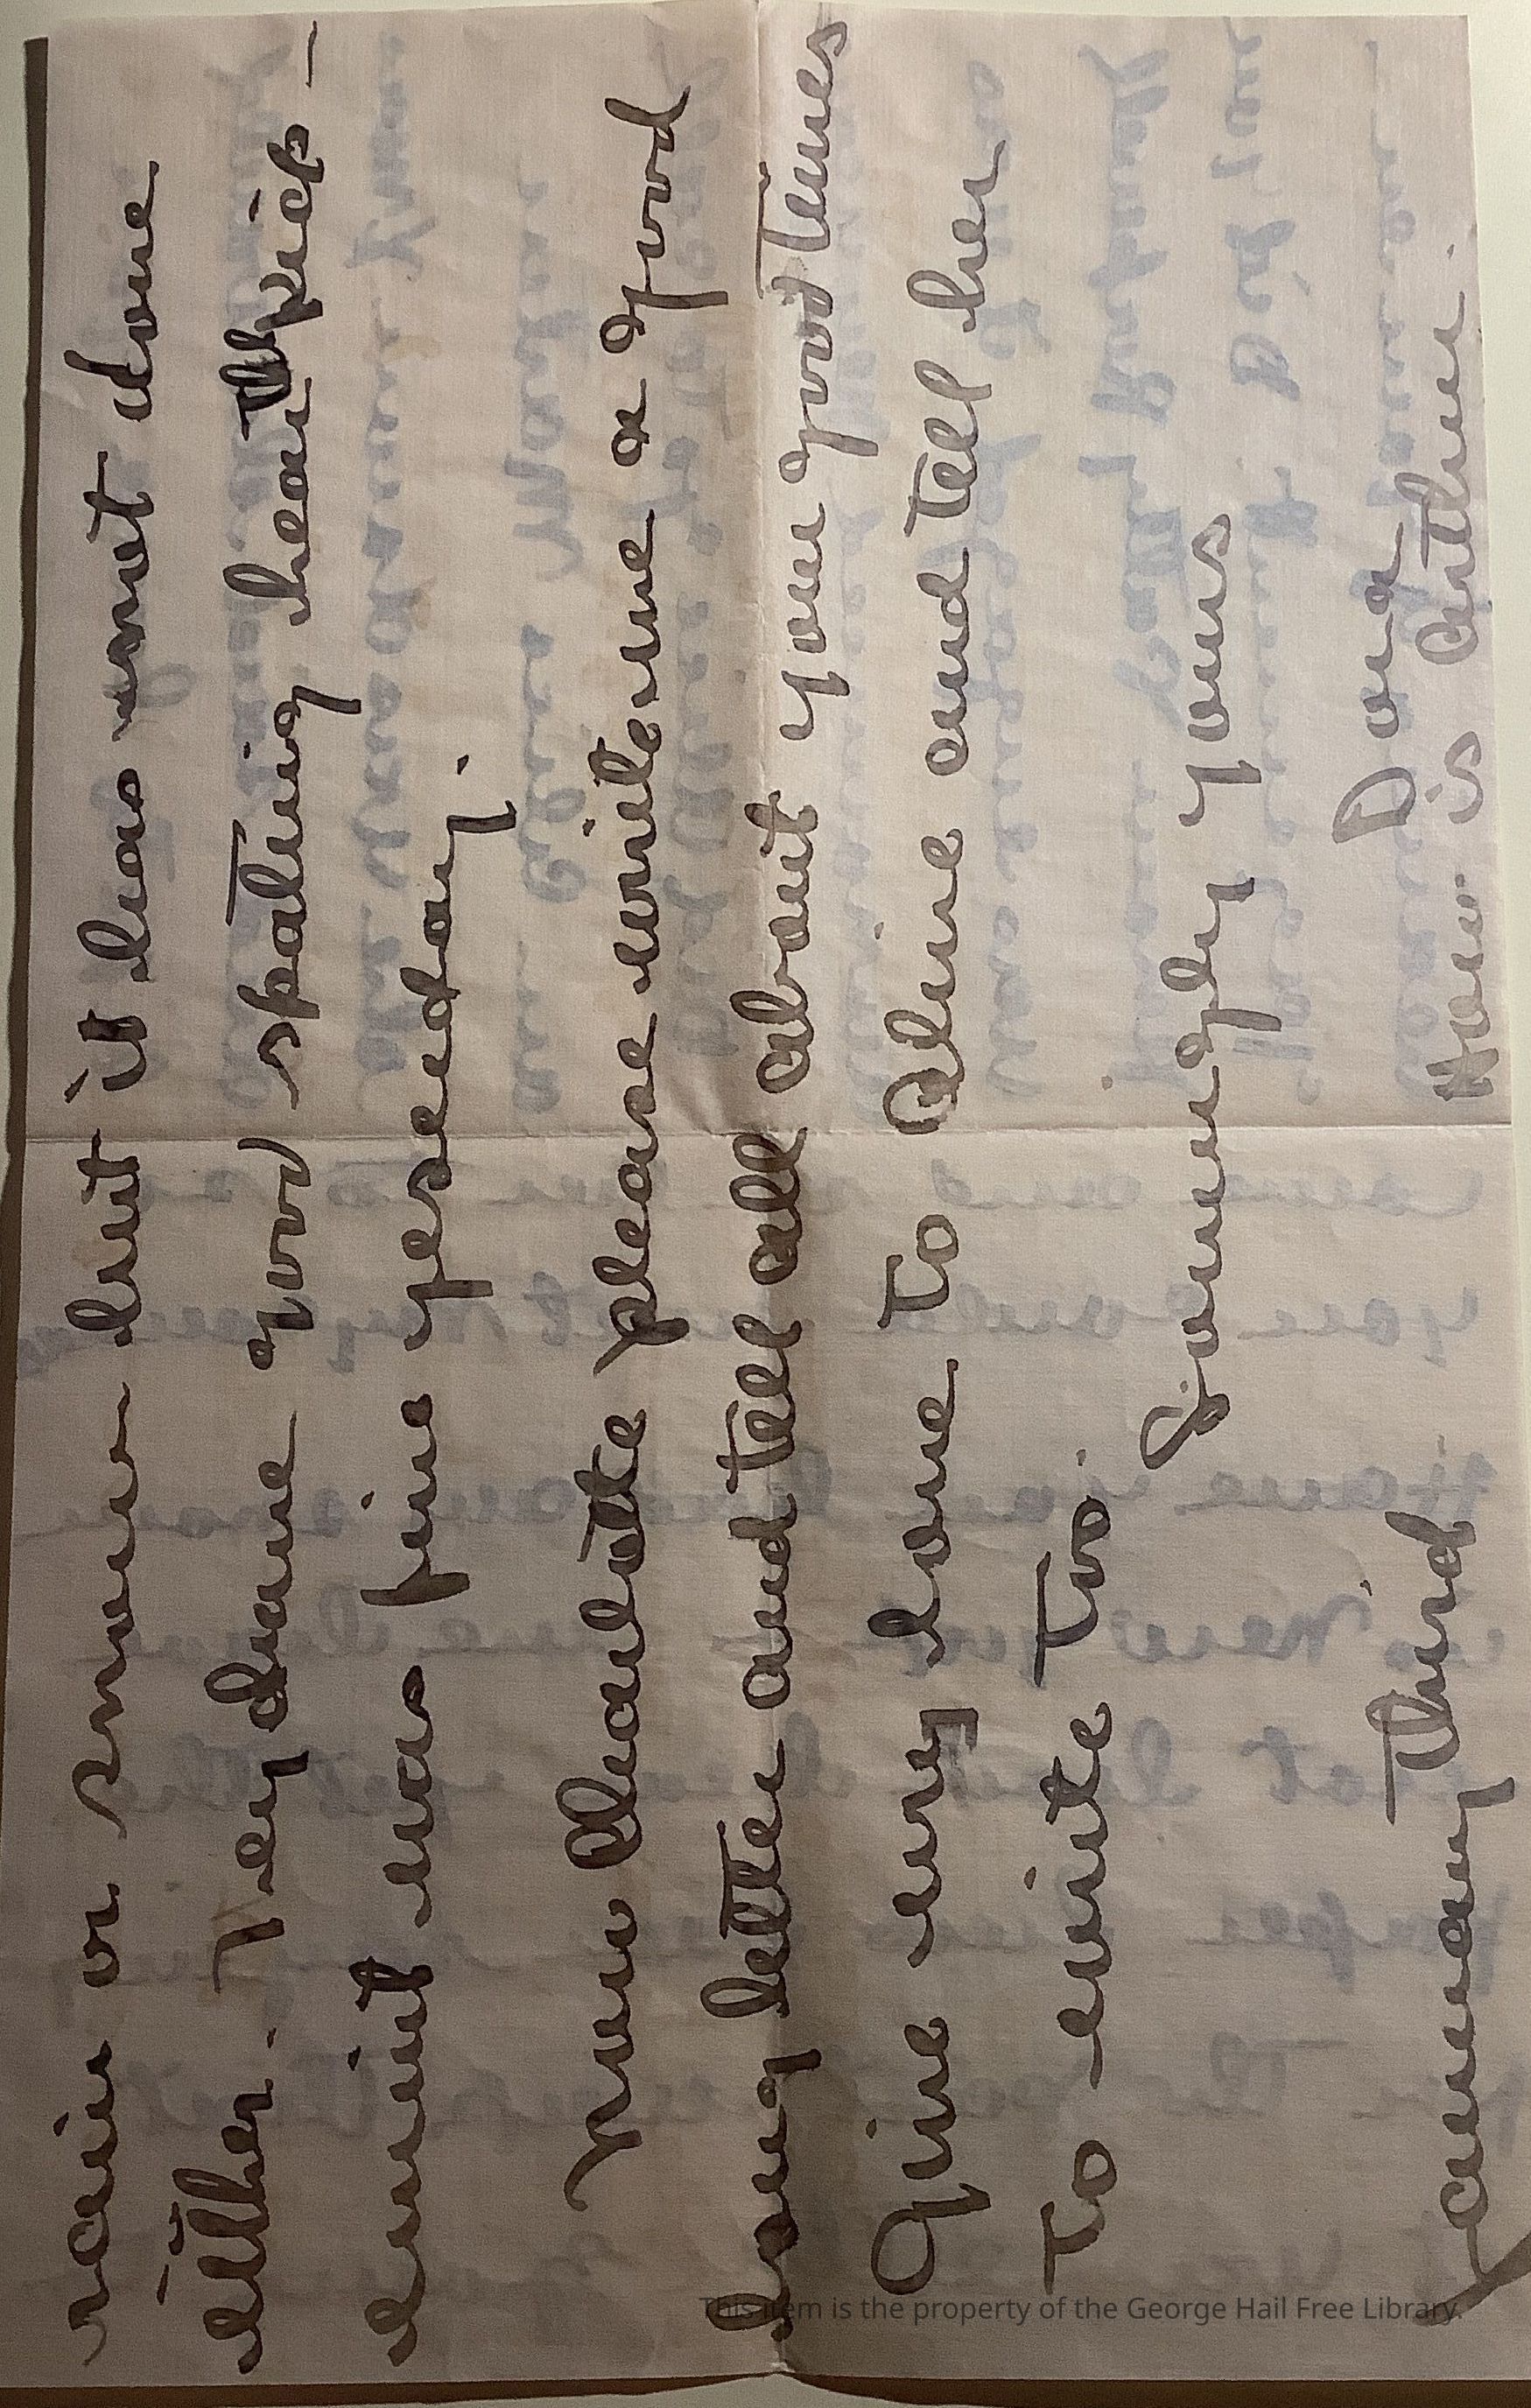 rain or snow but it has not done
either. They have good skating hear thpick
enuit was fine yeseday.
Now Charlotte please write me a good
long letter and tell all about your good times
Give my love to Aline and tell her
to write too.
Lovingly yours
Dora
January third
How is Arthur.
This item is the property of the George Hail Free Library.